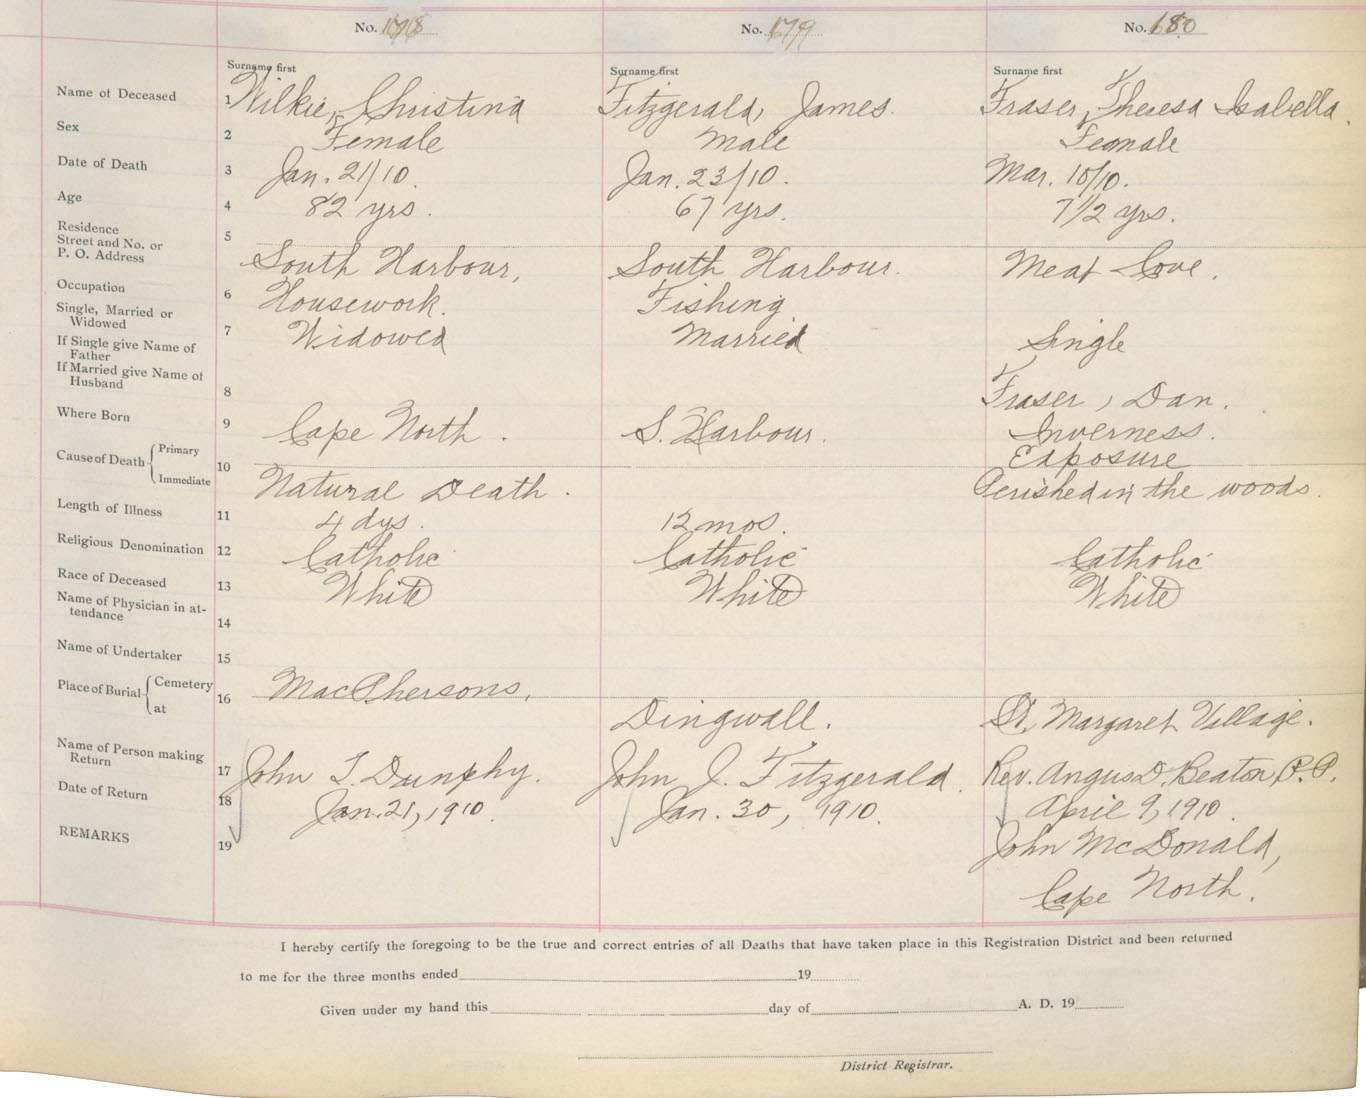 No. 178 No. 179 No. 180
Surname first Surname first Surname first
Name of Deceased 1 Wilkie, Christina Fitzgerald, James. Fraser, Theresa Isabella.
Sex 2 Female Male Female
Date of Death 3 Jan. 21/10. Jan. 23/10. Mar. 10/10.
Age 4 82 yrs. 67 yrs. 7 1/2 yrs.
Residence
Street and No. or 5
P. O. Address South Harbour, South Harbour. Meat Cove.
Occupation 6 Housework. Fishing
Single, Married or
Widowed 7 Widowed Married Single
If Single give Name of
Father
If Married give Name of
Husband 8 Fraser, Dan.
Where Born 9 Cape North. S. Harbour. Inverness.
Cause of Death Primary Exposure
10
Immediate Natural Death. Perished in the woods.
Length of Illness 11 4 dys. 12 mos.
Religious Denomination 12 Catholic Catholic Catholic
Race of Deceased 13 White White White
Name of Physician in at-
tendance 14
Name of Undertaker 15
Place of Burial Cemetery 16 MacPhersons,
at Dingwall. St. Margaret Village.
Name of Person making
Return 17 John T. Dunphy. John J. Fitzgerald. Rev. Angus D. Beaton, P.P.
Date of Return 18 Jan. 21, 1910. Jan. 30, 1910. April 9, 1910.
REMARKS 19 John McDonald,
Cape North.
I hereby certify the foregoing to be the true and correct entries of all Deaths that have taken place in this Registration District and been returned
to me for the three months ended 19
Given under my hand this day of A. D. 19
District Registrar.